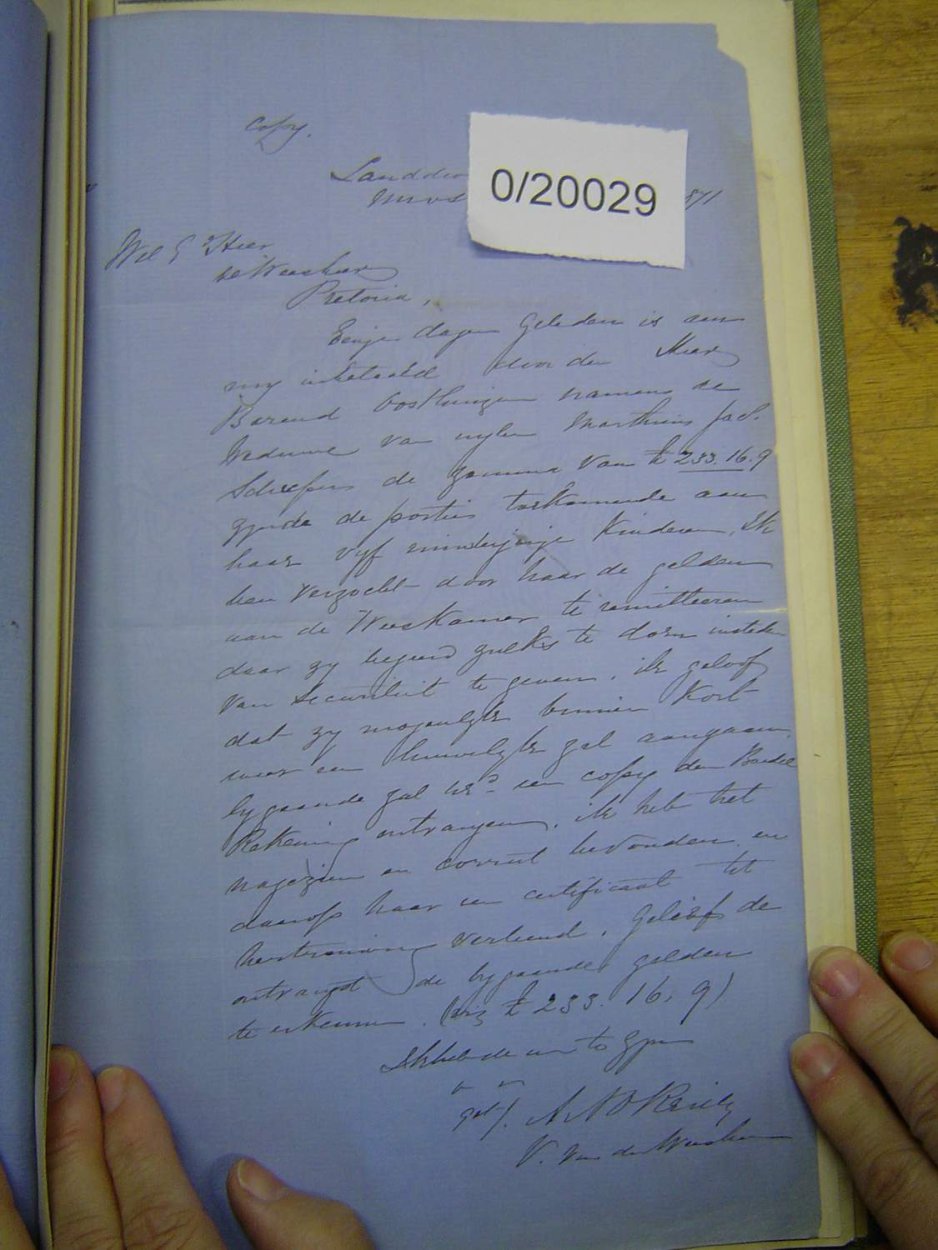 Copy.
Landdro
0/20029
871
Wel E Heer
de Weesheer
Pretoria,
Eenige dagen Geleden is aan
my inbetaald door den Heer
Barend Vosthuizen namens de
Weduwe van wylen Marthinus Jac.
Scheepers de somma van £ 233.16.9
zynde de portie toekomende aan
haar vyf minderjarige Kinderen. Ik
ben verzocht door haar de gelden
aan de Weeskamer te remitteeren
daar zy begeerd zulks te doen insteden
van Securiteit te geven. ik geloof
dat zy mogelyk binnen Kort
weer een huwelyk zal aangaan.
bygaande zal UEd een copy den Boedel
Rekening ontvangen. ik heb het
nagezien en correct bevonden. en
daarop haar een certificaat tot
hertrouwing verleend. Gelieft de
ontvangst de bygaande gelden
te erkennen. (viz £ 233. 16. 9)
Ik heb de eer te zyn
get/. A A O'Reilly
V. van der Weeskamer